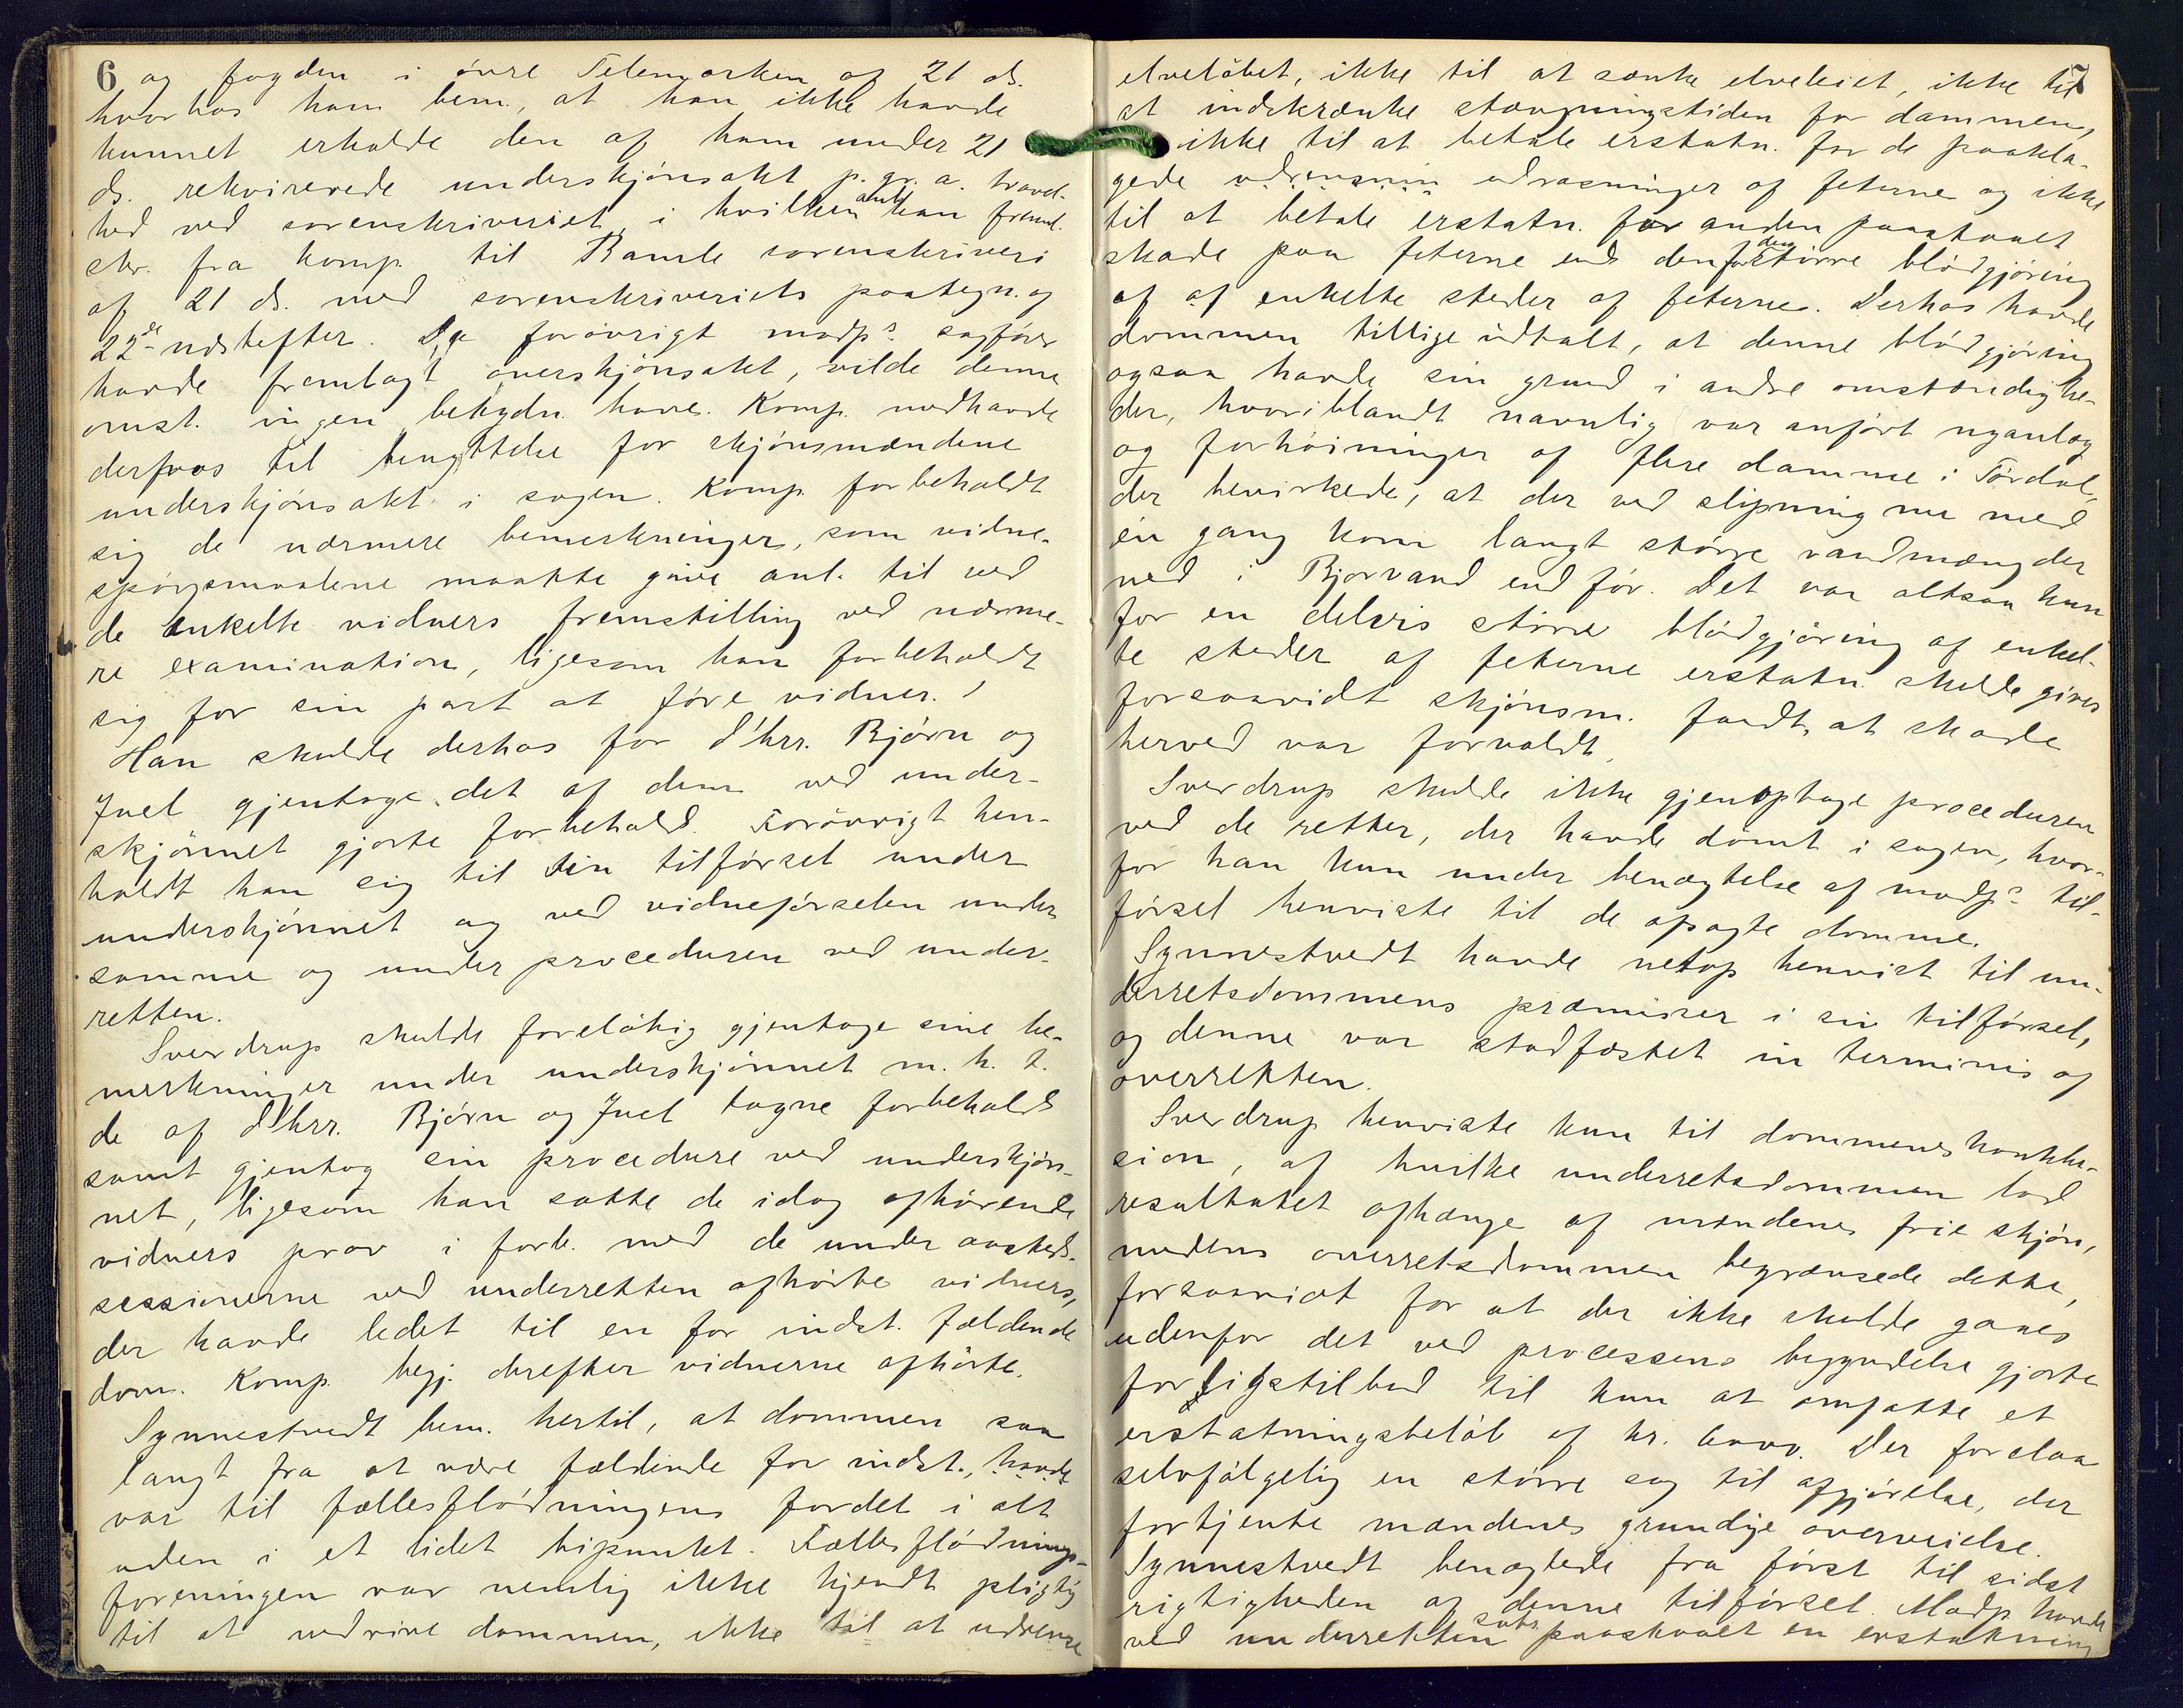 6 og fogden i øvre Telemarken af 21 ds.
hvorhos han bem., at han ikke havde
kunnet erholde den af ham under 21
ds. rekvirerede underskjønsakt p. gr. a. travl-
hed ved sorenskriveriet, i hvilken anl. han freml.
skr. fra komp. til Bamle sorenskriveri
af 21 ds. med sorenskriveriets paategn. og
22de udskefter. Da forøvrigt modp.s sagfører
havde fremlagt overskjønsaktet, vilde denne
omst. ingen betydn. have. Komp. medhavde
derfros til benyttelse for skjønsmændene
underskjønsakt i sagen. Komp. forbeholdt
sig de nærmere bemerkninger, som vidne-
spørgsmaalene maatte give anl. til ved
de enkelte vidners fremstilling ved nærme-
re examination, ligesom han forbeholdt
sig for sin part at føre vidner.
Han skulde derhos for d'hrr. Bjørn og
Juel gjentage det af dem ved under-
skjønnet gjorte forbehold. Forøvrigt hen-
holdt han sig til sin tilførsel under
underskjønnet og ved vidneførselen under
samme og under proceduren ved under-
retten.
Sverdrup skulde foreløbig gjentage sine be-
merkninger under underskjønnet m. h. t.
de af d'hrr. Bjørn og Juel tagne forbehold
samt gjentog sin procedure ved underskjøn-
net, ligesom han satte de idag afhørende
vidners prov i forb. med de under aasteds-
sessionerne ved underretten afhørte vidners,
der havde ledet til en for indst. fældende
dom. Komp. begj. derefter vidnerne afhørte.
Synnestvedt bem. hertil, at dommen saa
langt fra at være fældende for indst., havde
var til fællesflødningens fordel i alt
uden i et lidet bipunkt. Fællesflødnings-
foreningen var nemlig ikke kjendt pligtig
til at nedrive dammen, ikke til at udrense
7
elveløbet, ikke til at sænke elveleiet, ikke til
at indskrænke stævningstiden for dammen,
ikke til at betale erstatn. for de paakla-
gede udrensnin udrasninger af feterne og ikke
til at betale erstatn. for anden paastaaet
skade paa feterne end den for den større blødgjøring
af af enkelte steder af feterne. Derhos havde
dommen tillige udtalt, at denne blødgjøring
ogsaa havde sin grund i andre omstændighe-
der, hvoriblandt navnlig var anført nyanlæg
og forhøininger af flere damme i Tørdal,
der bevirkede, at der ved slipning nu med
én gang kom langt større vandmængder
ned i Bjorvand end før. Det var altsaa kun
for en delvis større blødgjøring af enkel-
te steder af feterne erstatn. skulde gives
forsaavidt skjønsm. fandt, at skade
herved var forvoldt.
Sverdrup skulde ikke gjenoptage proceduren
ved de retter, der havde dømt i sagen, hvor-
for han kun under benægtelse af modp.s til-
førsel henviste til de afsagte domme.
Synnestvedt havde netop henvist til un-
derretsdommens præmisser i sin tilførsel,
og denne var stadfæstet in terminis af
overretten.
Sverdrup henviste kun til dommenes konklu-
sion, af hvilke underretsdommen lod
resultatet afhænge af mændenes frie skjøn,
medens overretsdommen begrænsede dette,
forsaavidt for at der ikke skulde gaaes
udenfor det ved processens begyndelse gjorte
forligstilbud til kun at omfatte et
erstatningsbeløb af kr. 6000. Der forelaa
selvfølgelig en større sag til afgjørelse, der
fortjente mændenes grundige overveielse.
Synnestvedt benægtede fra først til sidst
rigtigheden af denne tilførsel. Modp. havde
ved underretten subs. paastaaet en erstatning